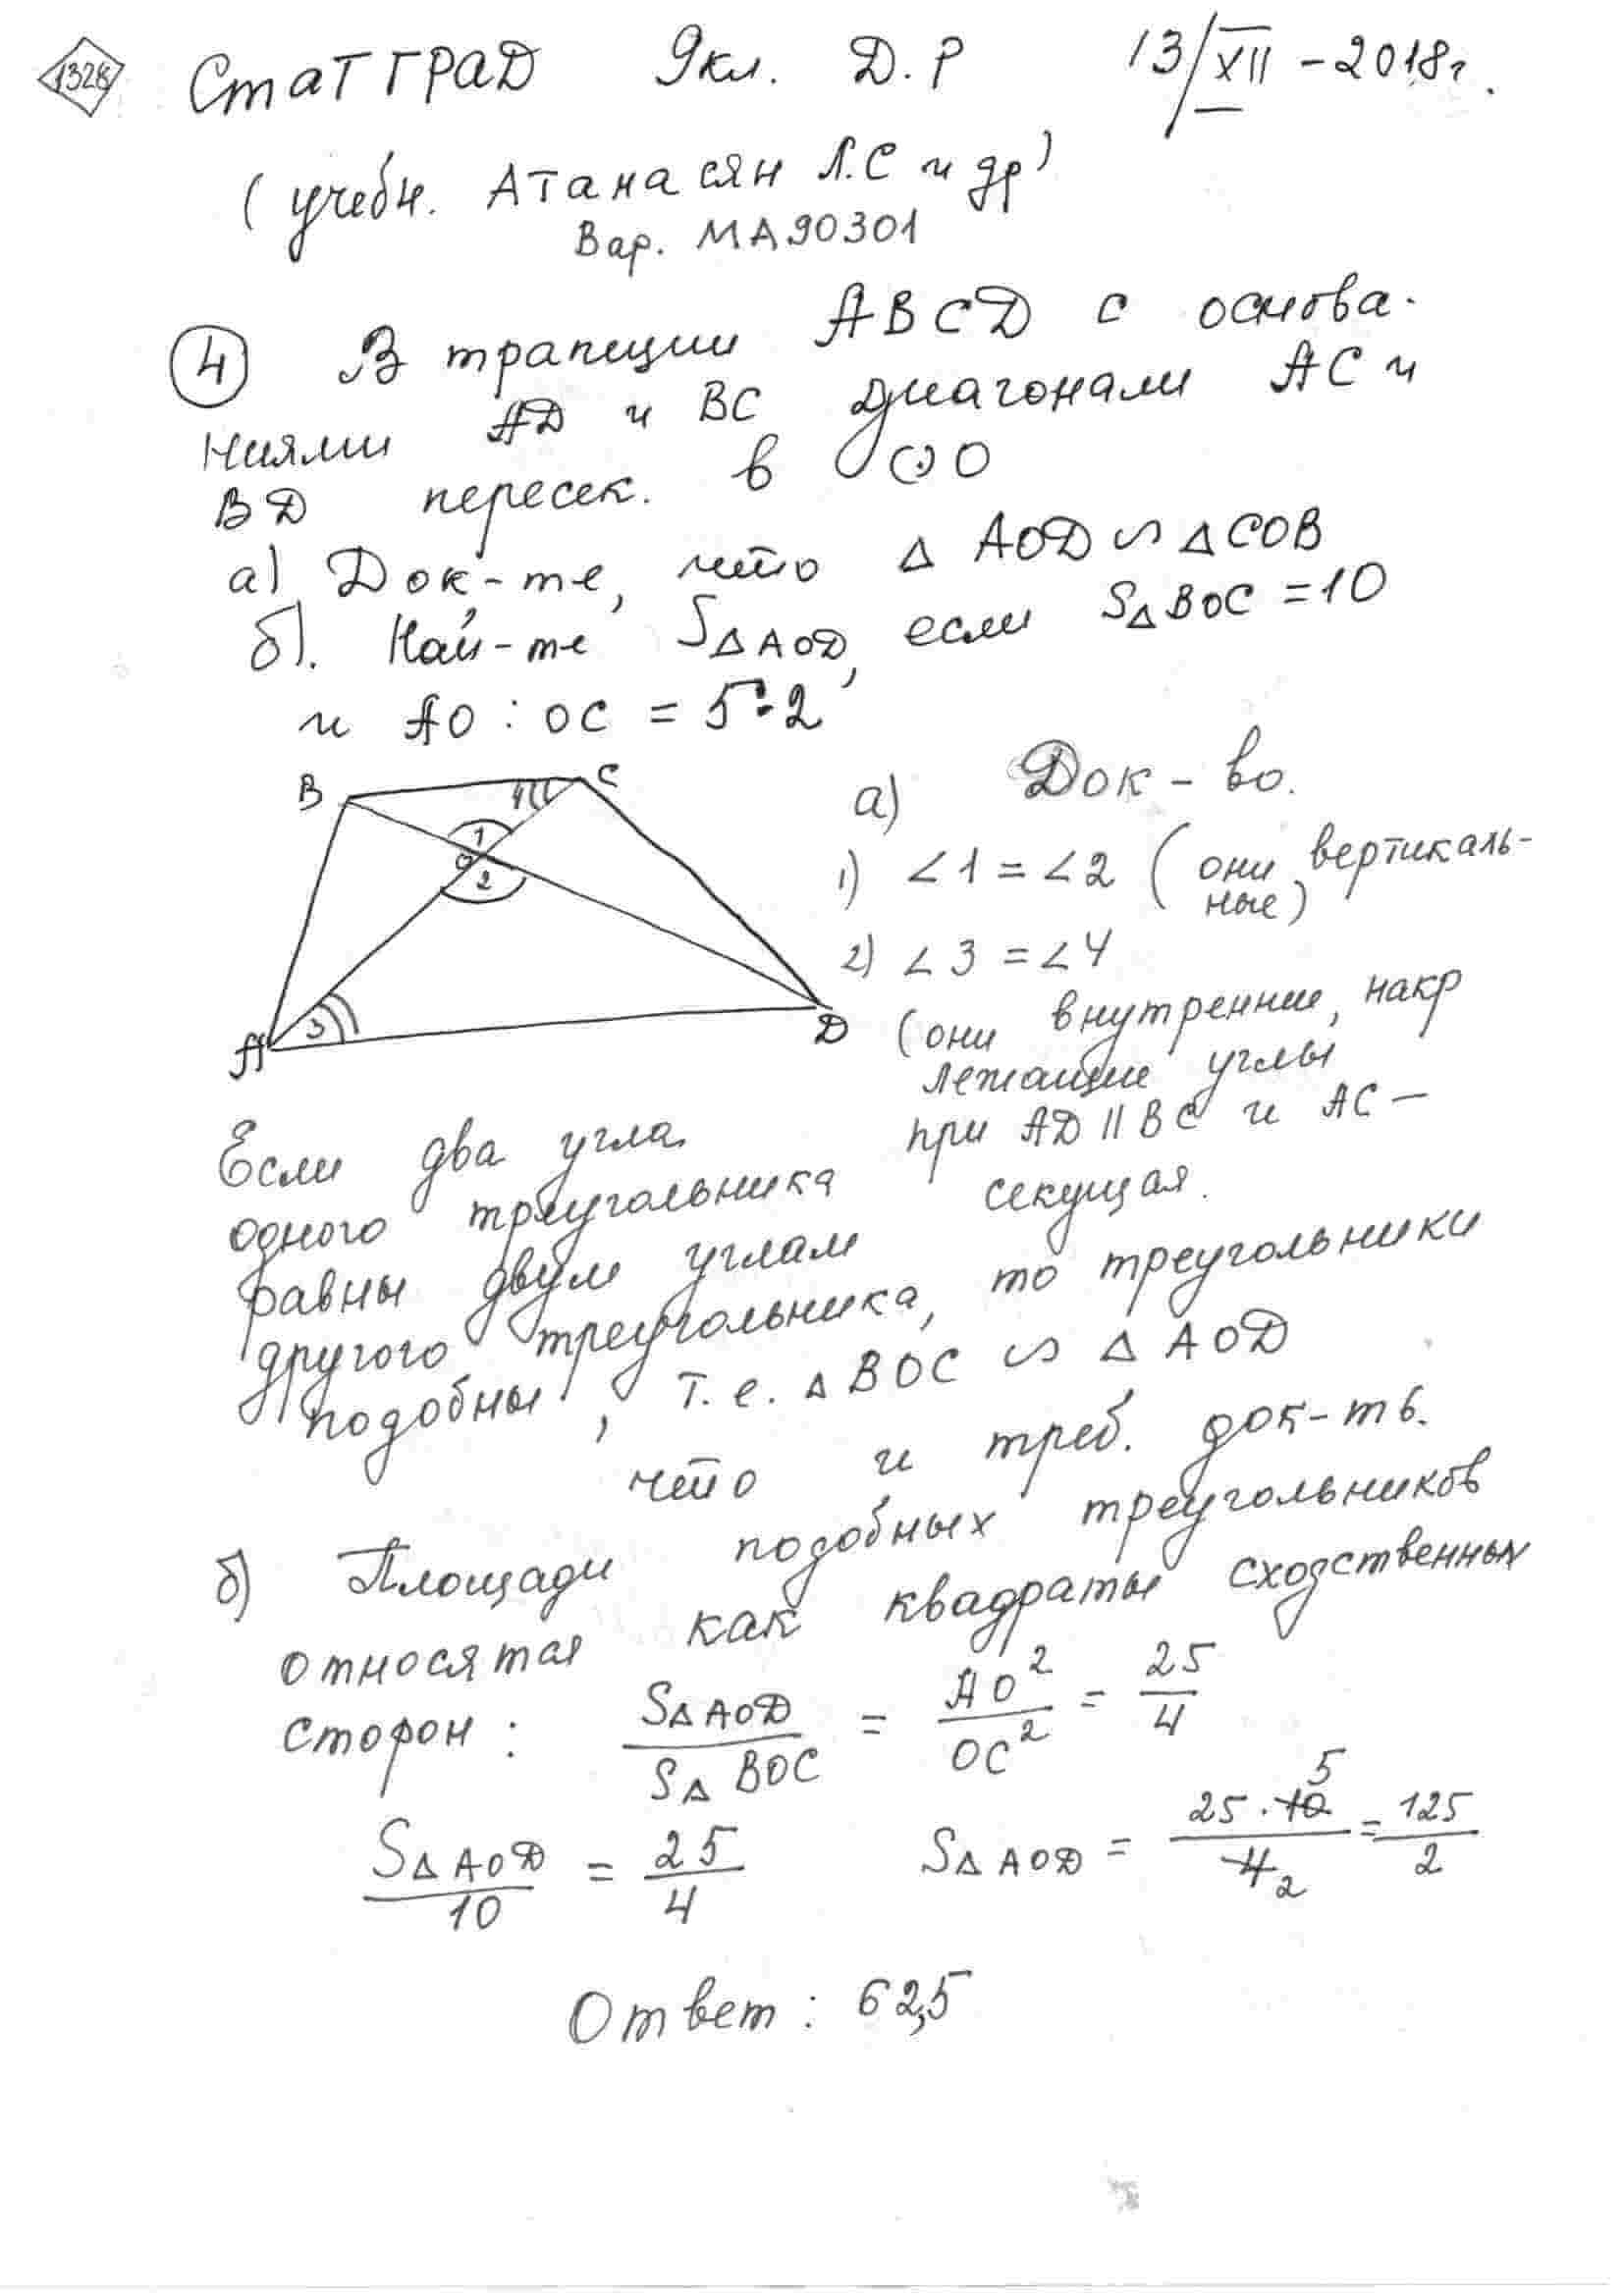 1328
СтатГрад 9кл. Д.Р 13/XII - 2018г.
(учебн. Атанасян Л.С и др)
Вар. МА90301
4 В трапеции ABCD с основа-
ниями AD и BC диагонали AC и
BD пересек. в (·) O
а) Док-те, что Δ AOD ∽ Δ COB
б). Най-те SΔAOD, если SΔBOC = 10
и AO : OC = 5:2
B C 4 1 O 2 3 A D
а) Док-во.
1) ∠1 = ∠2 (они вертикаль-
ные)
2) ∠3 = ∠4
(они внутренние, накр
лежащие углы
при AD || BC и AC —
секущая.
Если два угла
одного треугольника
равны двум углам
другого треугольника, то треугольники
подобны, т.е. Δ BOC ∽ Δ AOD
что и треб. док-ть.
б) Площади подобных треугольников
относятся как квадраты сходственных
сторон: SΔAOD / SΔBOC = AO² / OC² = 25/4
SΔAOD / 10 = 25/4 SΔAOD = 25·10 5 / 4 2 = 125/2
Ответ: 62,5